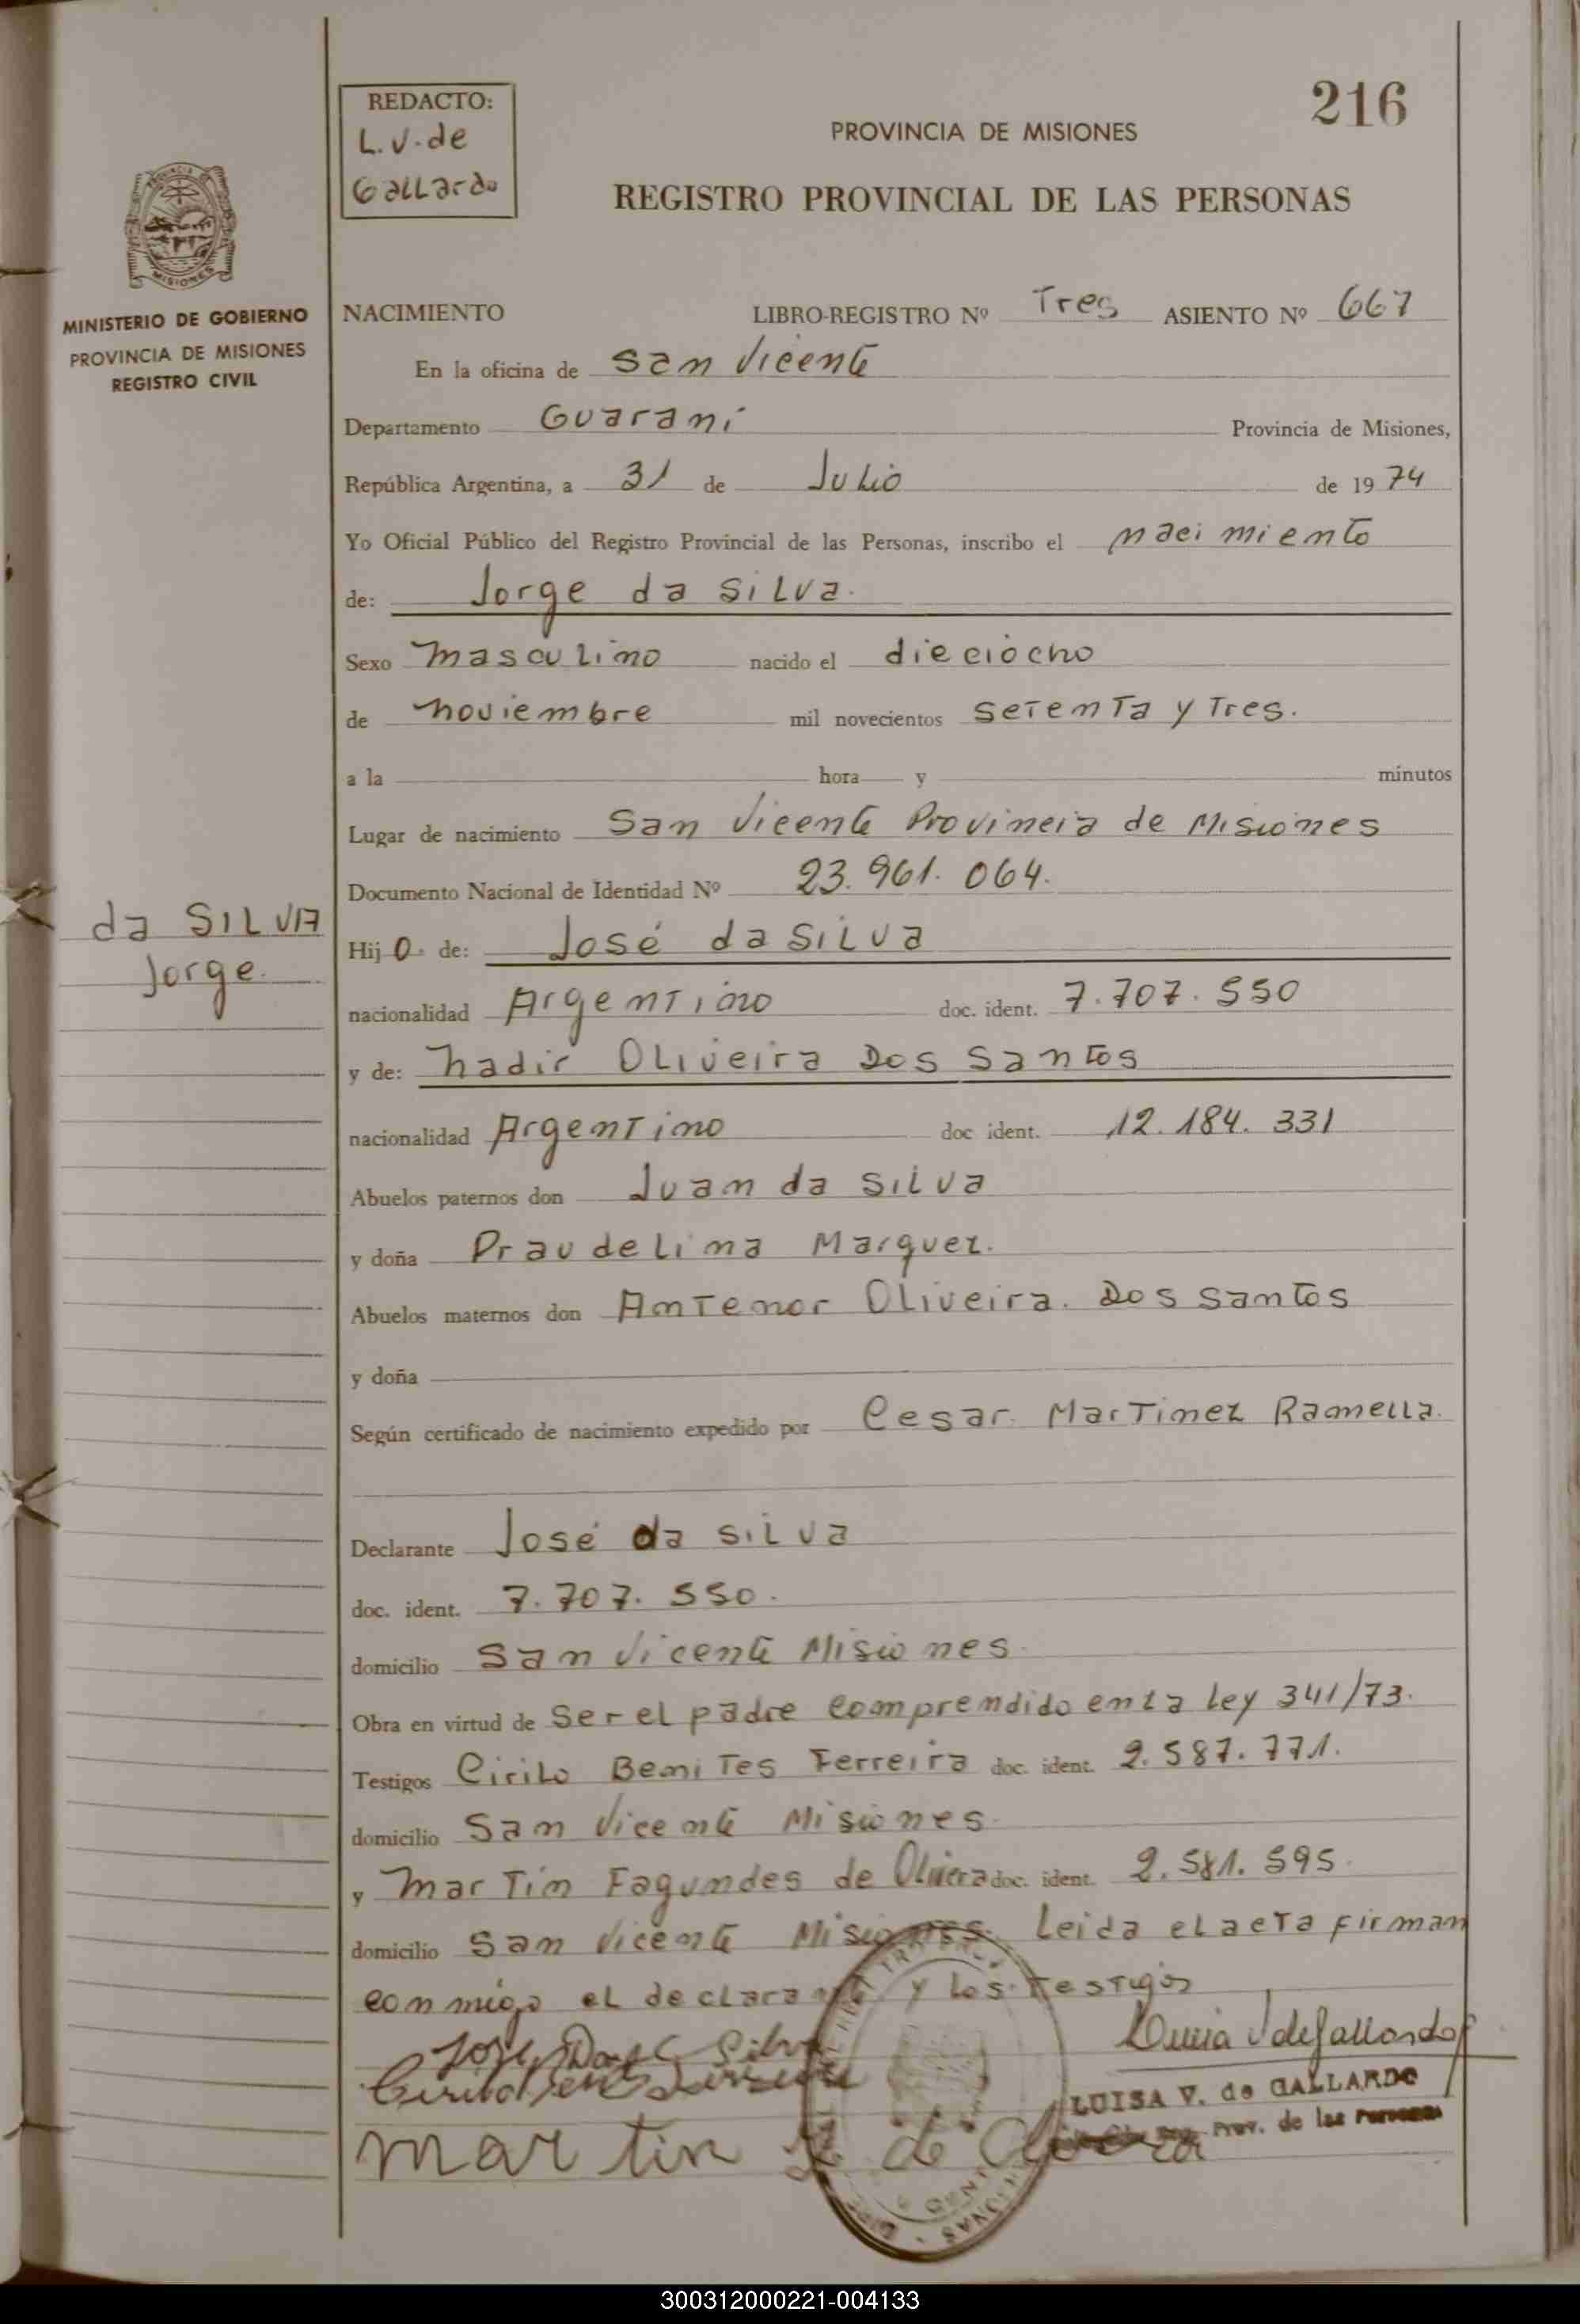 REDACTO:
L. V. de
Gallardo
216
PROVINCIA DE MISIONES
REGISTRO PROVINCIAL DE LAS PERSONAS
MISIONES
MINISTERIO DE GOBIERNO
PROVINCIA DE MISIONES
REGISTRO CIVIL
NACIMIENTO LIBRO-REGISTRO Nº Tres ASIENTO Nº 667
En la oficina de San Vicente
Departamento Guaraní Provincia de Misiones,
República Argentina, a 31 de Julio de 1974
Yo Oficial Público del Registro Provincial de las Personas, inscribo el nacimiento
de: Jorge da Silva.
Sexo masculino nacido el dieciocho
de noviembre mil novecientos setenta y Tres.
a la hora y minutos
Lugar de nacimiento San Vicente Provincia de Misiones
Documento Nacional de Identidad Nº 23.961.064.
da SILVA
Jorge.
Hijo de: José da Silva
nacionalidad Argentino doc. ident. 7.707.550
y de: nadir Oliveira Dos Santos
nacionalidad Argentino doc ident. 12.184.331
Abuelos paternos don Juan da Silva
y doña Praudelina Marquez.
Abuelos maternos don Antenor Oliveira. Dos Santos
y doña
Según certificado de nacimiento expedido por Cesar Martinez Ramella.
Declarante José da Silva
doc. ident. 7.707.550.
domicilio San Vicente Misiones.
Obra en virtud de Ser el padre comprendido en la ley 341/73.
Testigos Cirilo Benites Ferreira doc. ident. 2.587.771.
domicilio San Vicente Misiones.
y Martin Fagundes de Olivera doc. ident. 2.581.595.
domicilio San Vicente Misiones. Leida el acta firman
conmigo el declarante y los testigos
Jose Da Silva
Luisa V de Gallardo
LUISA V. de GALLARDO
Prov. de las Personas
martin de Olivera
300312000221-004133